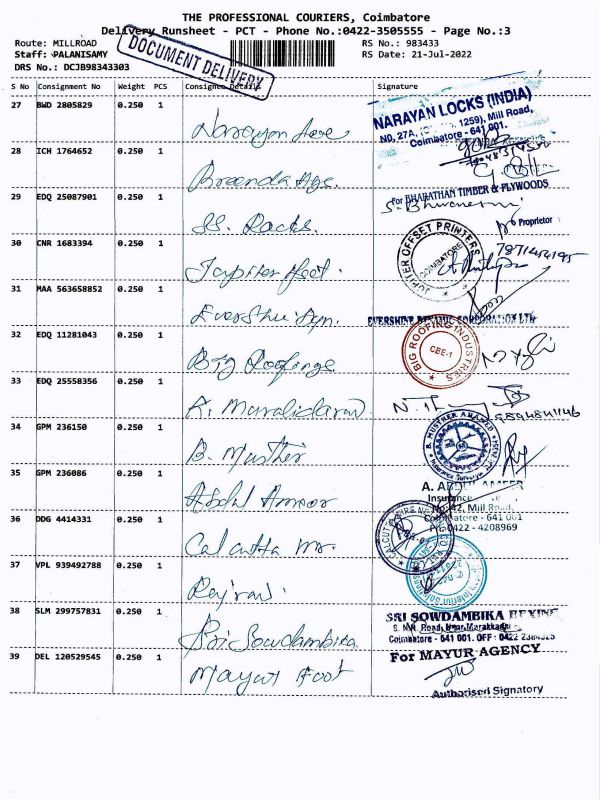 THE PROFESSIONAL COURIERS, Coimbatore
Delivery Runsheet - PCT - Phone No.:0422-3505555 - Page No.:3
Route: MILLROAD
RS No.: 983433
Staff: PALANISAMY
RS Date: 21-Jul-2022
DRS No.: DCJB98343303
DOCUMENT DELIVERY
S No Consignment No Weight PCS Consignee Details Signature
27 BWD 2805829 0.250 1
NARAYAN LOCKS (INDIA)
NO. 27A, 1259), Mill Road,
Coimbatore - 641 001.
Narayan
28 ICH 1764652 0.250 1
29 EDQ 25087901 0.250 1
For BHARATHAN TIMBER & PLYWOODS
Proprietor
SS. Racks.
30 CNR 1683394 0.250 1
JUPITER OFFSET PRINTERS
COIMBATORE
Jupiter
31 MAA 563658852 0.250 1
32 EDQ 11281043 0.250 1
BIG ROOFING INDUSTRIES
CBE-1
Big Roofings
33 EDQ 25558356 0.250 1
A. Muralidaran
9894841146
34 GPM 236150 0.250 1
B. MUSTHER AHAMED
B. Musther
35 GPM 236086 0.250 1
A. ABDUL AMEER
Insurance
No: 42, Mill Road,
Coimbatore - 641 001
Ph: 0422 - 4208969
Abdul Ameer
36 DDG 4414331 0.250 1
Calcutta
37 VPL 939492788 0.250 1
38 SLM 299757831 0.250 1
SRI SOWDAMBIKA REXINE
Coimbatore - 641 001. OFF : 0422
Sri Sowdambika
39 DEL 120529545 0.250 1
For MAYUR AGENCY
Mayur Foot
Authorised Signatory